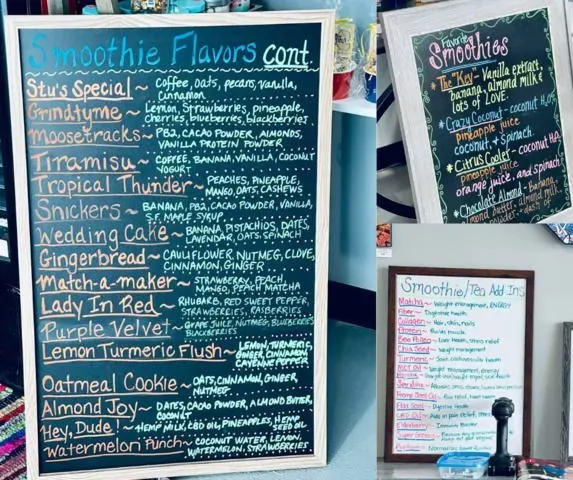 Smoothie Flavors cont.
Stu's Special ~ Coffee, oats, pecans, vanilla,
cinnamon
Grindtyme ~ Lemon, strawberries, pineapple,
cherries, blueberries, blackberries
Moosetracks ~ PB2, CACAO POWDER, ALMONDS,
VANILLA PROTEIN POWDER
Tiramisu ~ COFFEE, BANANA, VANILLA, COCONUT
YOGURT
Tropical Thunder ~ PEACHES, PINEAPPLE,
MANGO, OATS, CASHEWS
Snickers ~ BANANA, PB2, CACAO POWDER, VANILLA,
S.F. MAPLE SYRUP
Wedding Cake ~ BANANA, PISTACHIOS, DATES,
LAVENDAR, OATS, SPINACH
Gingerbread ~ CAULIFLOWER, NUTMEG, CLOVE,
CINNAMON, GINGER
Match-a-maker ~ STRAWBERRY, PEACH,
MANGO, PEACH MATCHA
Lady In Red ~ RHUBARB, RED SWEET PEPPER,
STRAWBERRIES, RASBERRIES
Purple Velvet ~ GRAPE JUICE, NUTMEG, BLUEBERRIES
BLACKBERRIES
Lemon Turmeric Flush ~ LEMON, TURMERIC,
GINGER, CINNAMON,
CAYENNE PEPPER
Oatmeal Cookie ~ OATS, CINNAMON, GINGER,
NUTMEG
Almond Joy ~ DATES, CACAO POWDER, ALMOND BUTTER,
COCONUT
Hey, Dude! ~ HEMP MILK, CBD OIL, PINEAPPLES, HEMP
SEED OIL
Watermelon Punch ~ COCONUT WATER, LEMON,
WATERMELON, STRAWBERRIES
Favorite
Smoothies
* The "Key" ~ Vanilla extract,
banana, almond milk &
lots of LOVE.
* Crazy Coconut ~ coconut H2O,
pineapple juice
coconut, & spinach.
* Citrus Cooler ~ coconut H2O,
pineapple juice
orange juice, and spinach
* Chocolate Almond ~ Banana,
almond butter, almond milk,
powder, dash of
Smoothie/Tea Add Ins
Matcha ~ Weight management, ENERGY
Fiber ~ Digestive health
Collagen ~ Hair, skin, nails
Protein ~ Builds muscle
Bee Pollen ~ Liver health, stress relief
Chia Seed ~ Weight management
Turmeric ~ Joint, cardiovascular health
MCT Oil ~ Weight management, energy
Spirulina ~
Hemp Seed Oil ~ Pain relief, heart health
Flax Seed ~ Digestive Health
CBD Oil ~ Aids in pain relief, stress
Elderberry ~ Immunity Booster
Super Greens ~